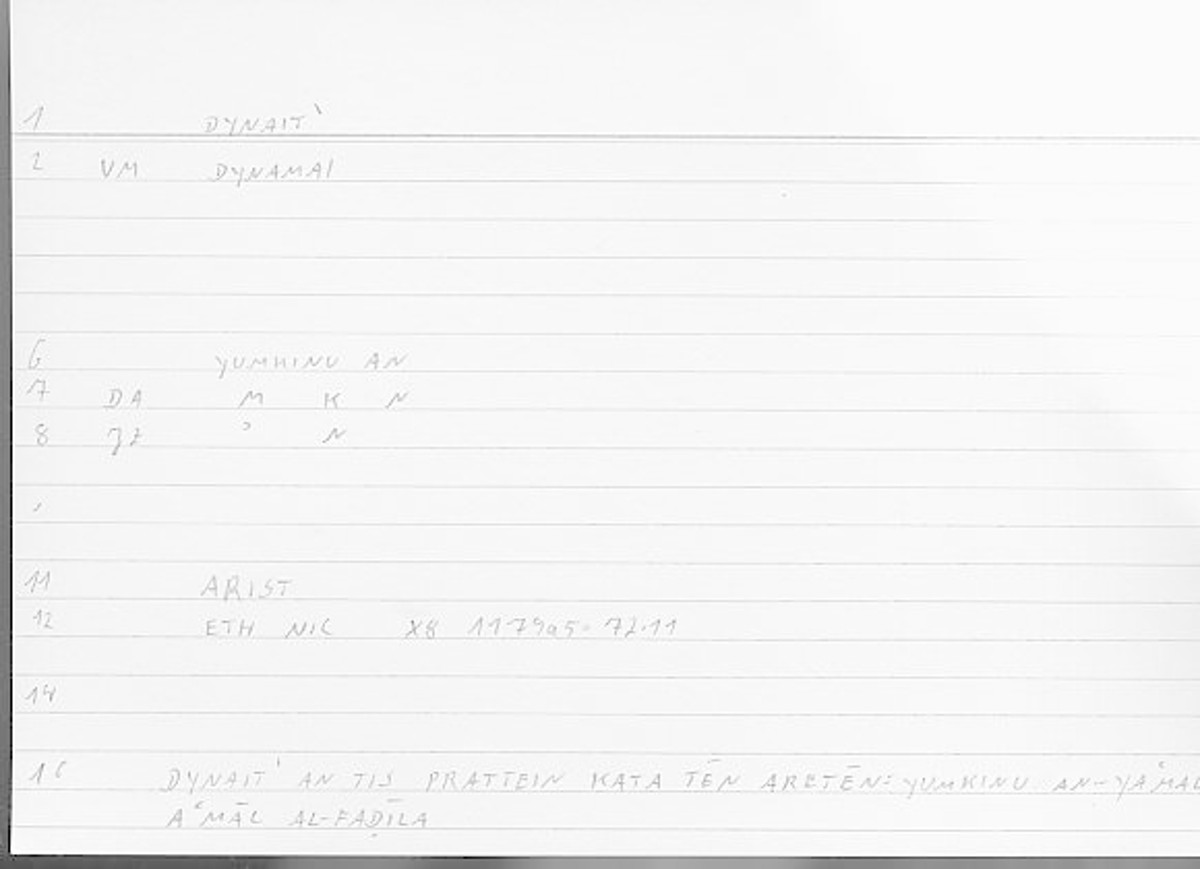 1 DYNAIT`
2 VM DYNAMAI
6 YUMKINU AN
7 DA M K N
8 ʾ N
11 ARIST
12 ETH NIC X8 1179a5= 72.11
14
16 DYNAIT' AN TIS PRATTEIN KATA TĒN ARETĒN: YUMKINU AN-YAʿMAL
AʿMĀL AL-FAḌĪLA